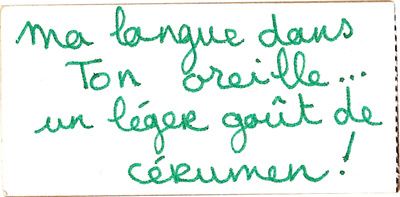 ma langue dans
Ton oreille...
un léger goût de
cérumen !